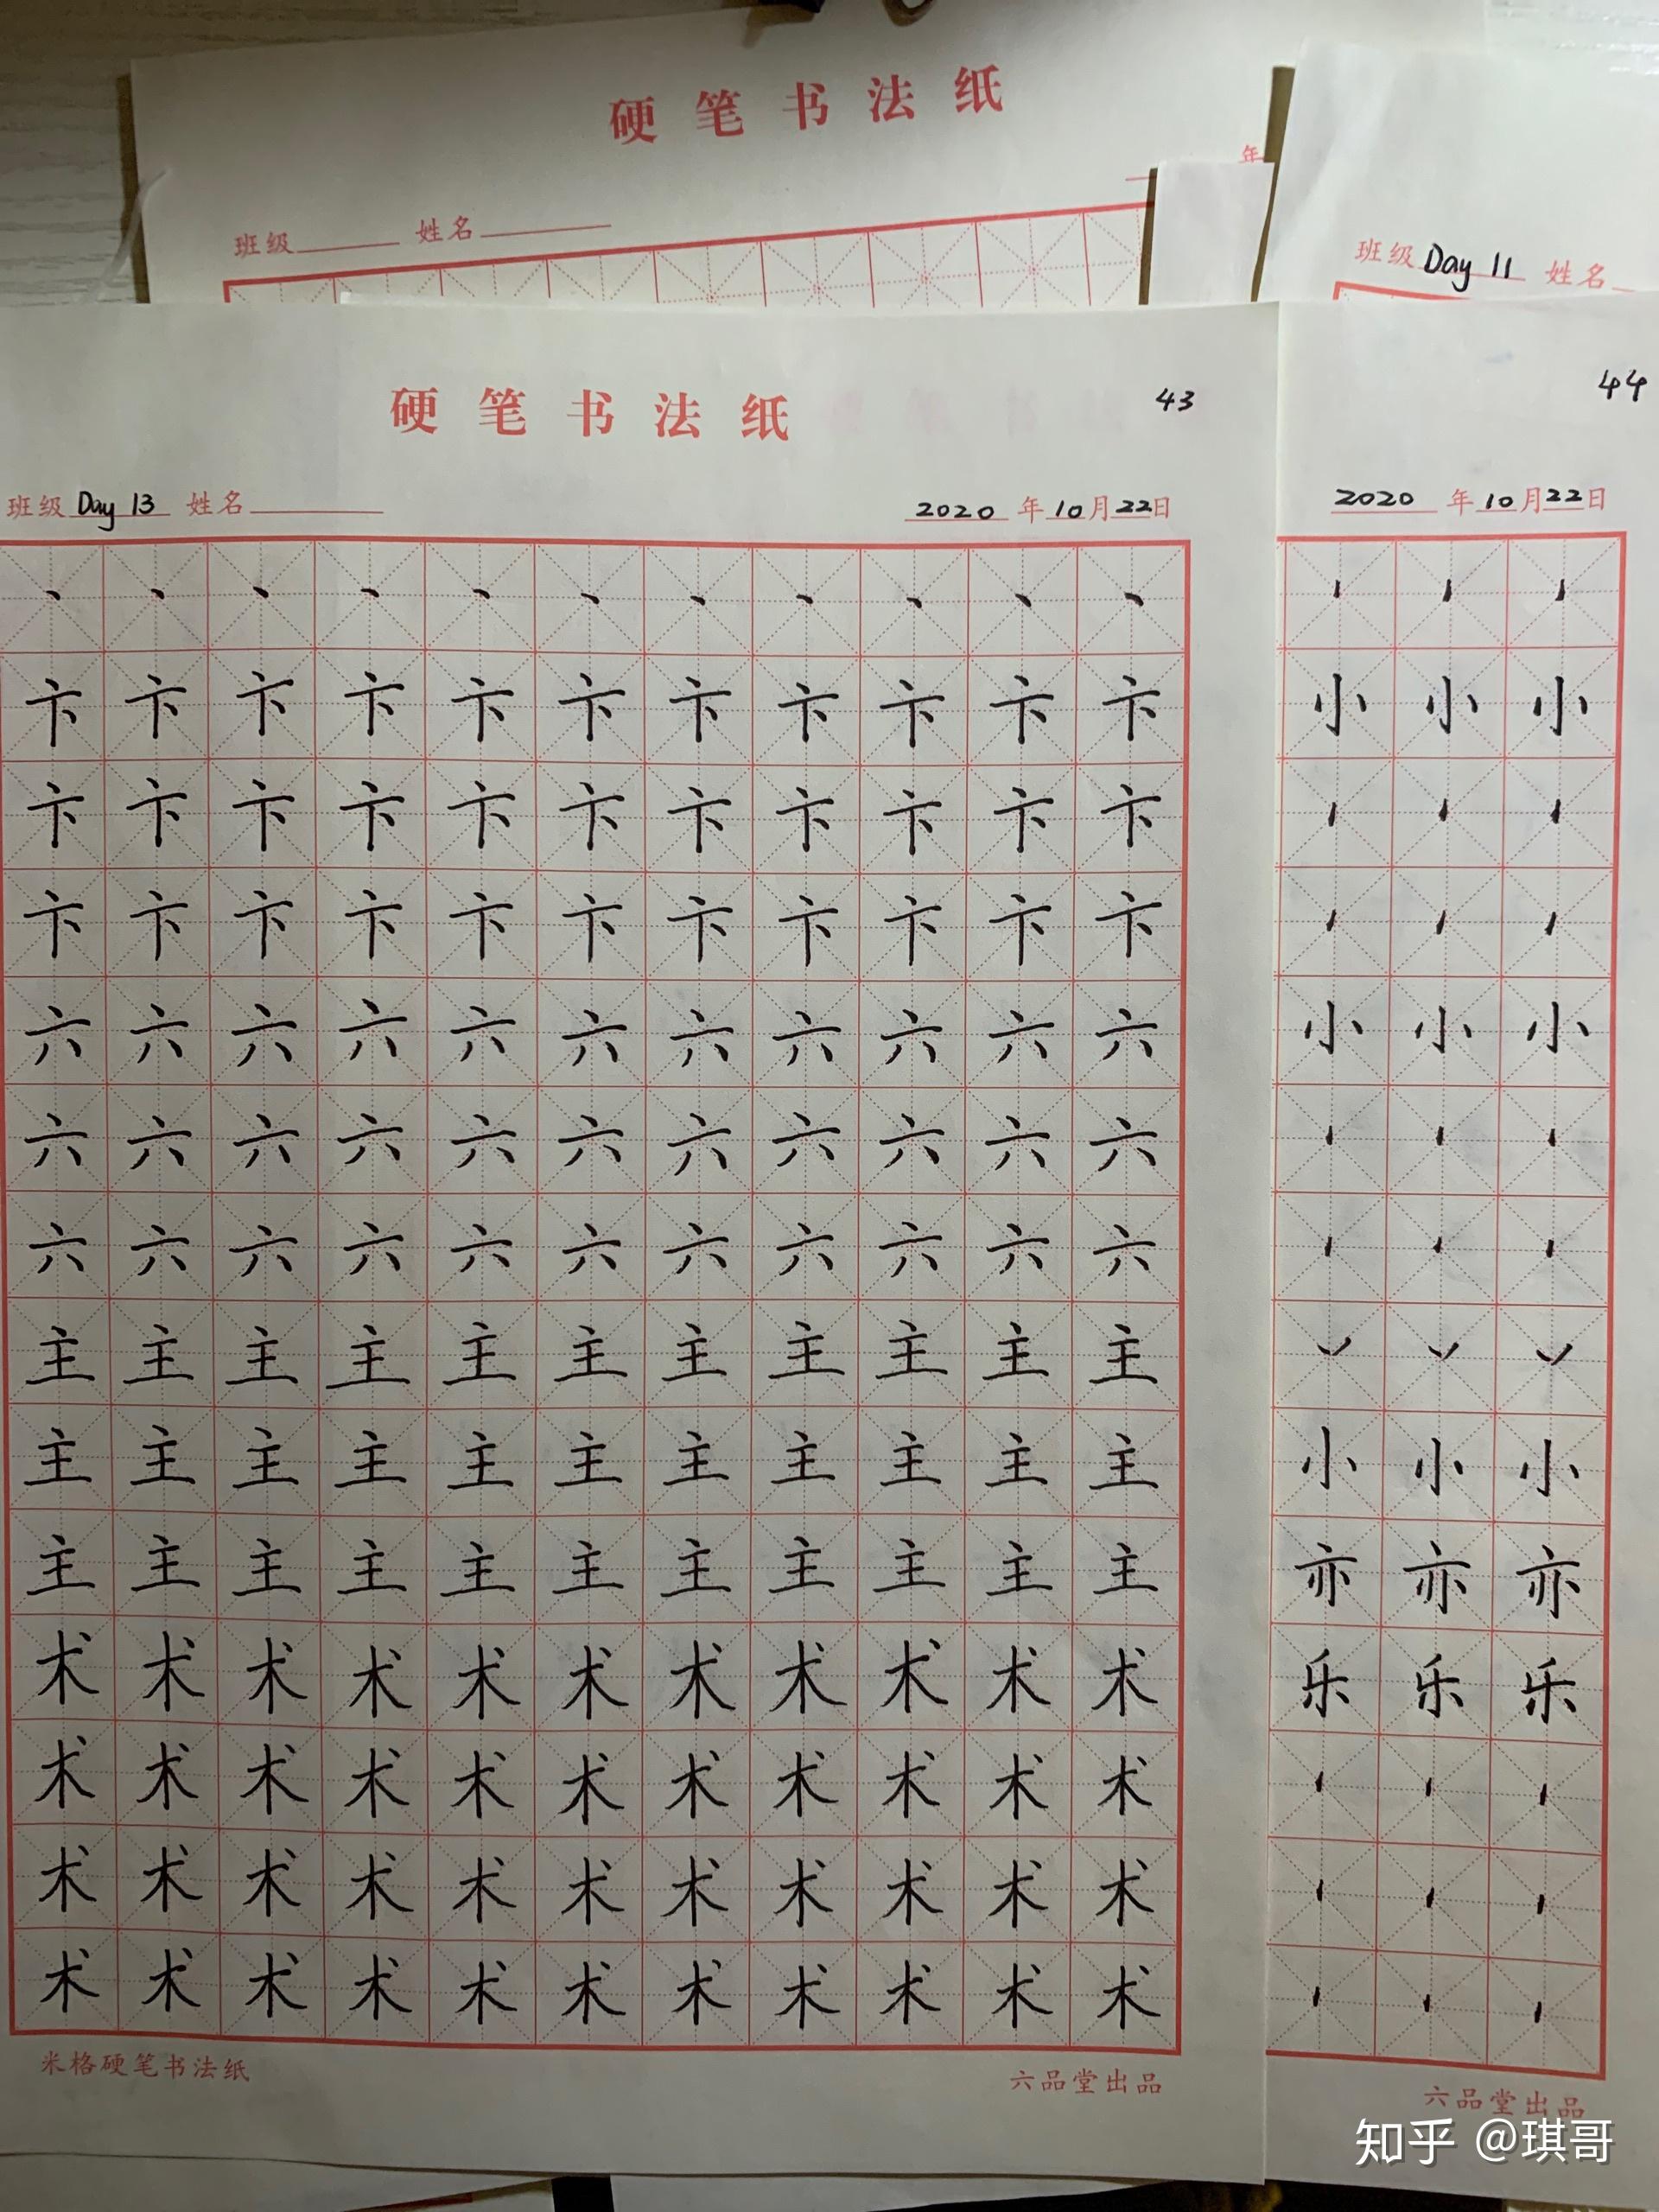 硬笔书法纸
年
班级 姓名
班级 Day 11 姓名
44
硬笔书法纸 43
班级 Day 13 姓名 2020 年 10 月 22 日
丶 丶 丶 丶 丶 丶 丶 丶 丶 丶 丶
卞 卞 卞 卞 卞 卞 卞 卞 卞 卞 卞
卞 卞 卞 卞 卞 卞 卞 卞 卞 卞 卞
卞 卞 卞 卞 卞 卞 卞 卞 卞 卞 卞
六 六 六 六 六 六 六 六 六 六 六
六 六 六 六 六 六 六 六 六 六 六
六 六 六 六 六 六 六 六 六 六 六
主 主 主 主 主 主 主 主 主 主 主
主 主 主 主 主 主 主 主 主 主 主
主 主 主 主 主 主 主 主 主 主 主
术 术 术 术 术 术 术 术 术 术 术
术 术 术 术 术 术 术 术 术 术 术
术 术 术 术 术 术 术 术 术 术 术
术 术 术 术 术 术 术 术 术 术 术
米格硬笔书法纸 六品堂出品
2020 年 10 月 22 日
小 小 小
小 小 小
小 小 小
亦 亦 亦
乐 乐 乐
六品堂出品
知乎 @琪哥